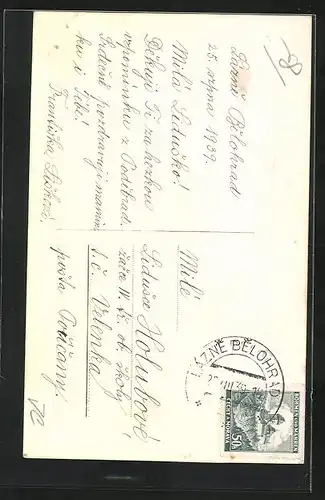 Lázně Bělohrad
25. srpna 1939.
Milá Liduško!
Děkuji Ti za hezkou
vzpomínku z Poděbrad.
Srdečně pozdravuji mamin-
ku i Tebe!
Františka
Milé
Liduša Holubové
žače IV. tř. ob. školy
č. Velenka
pošta Poříčany.
LÁZNĚ BĚLOHRAD
BÖHMEN UND MÄHREN
ČECHY A MORAVA
50h